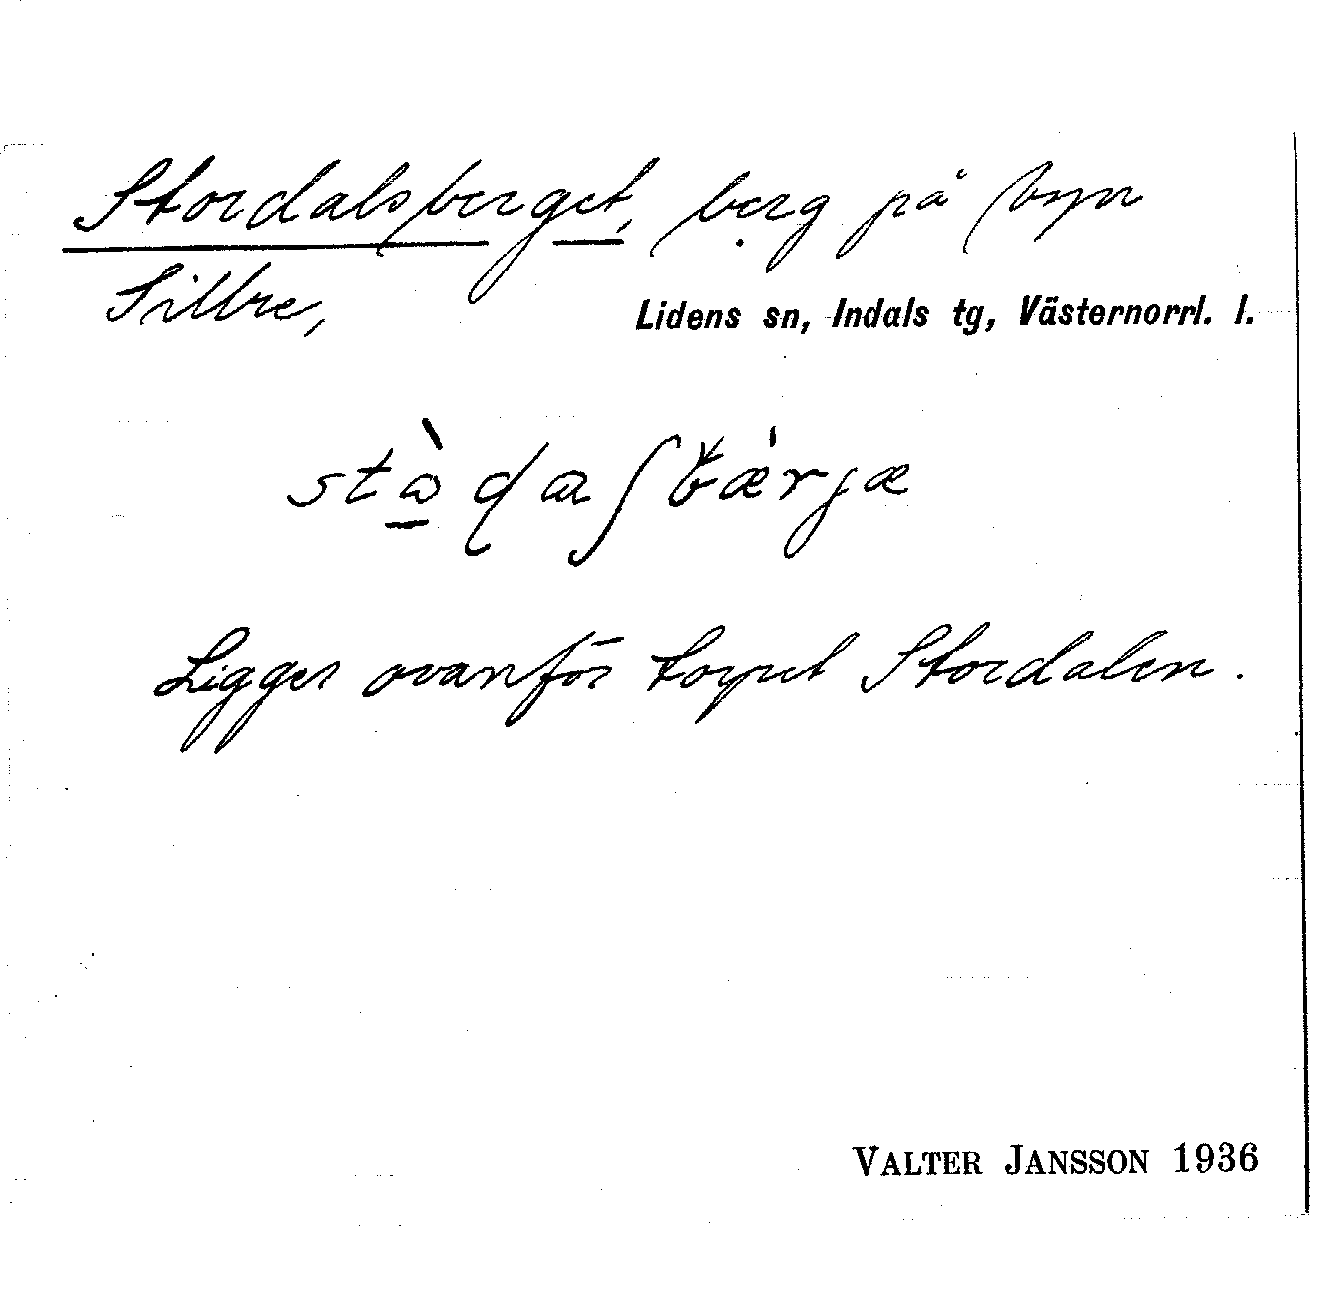 Stordalsberget, berg på byn
Sillre,
Lidens sn, Indals tg, Västernorrl. l.
Ligger ovanför torpet Stordalen.
VALTER JANSSON 1936